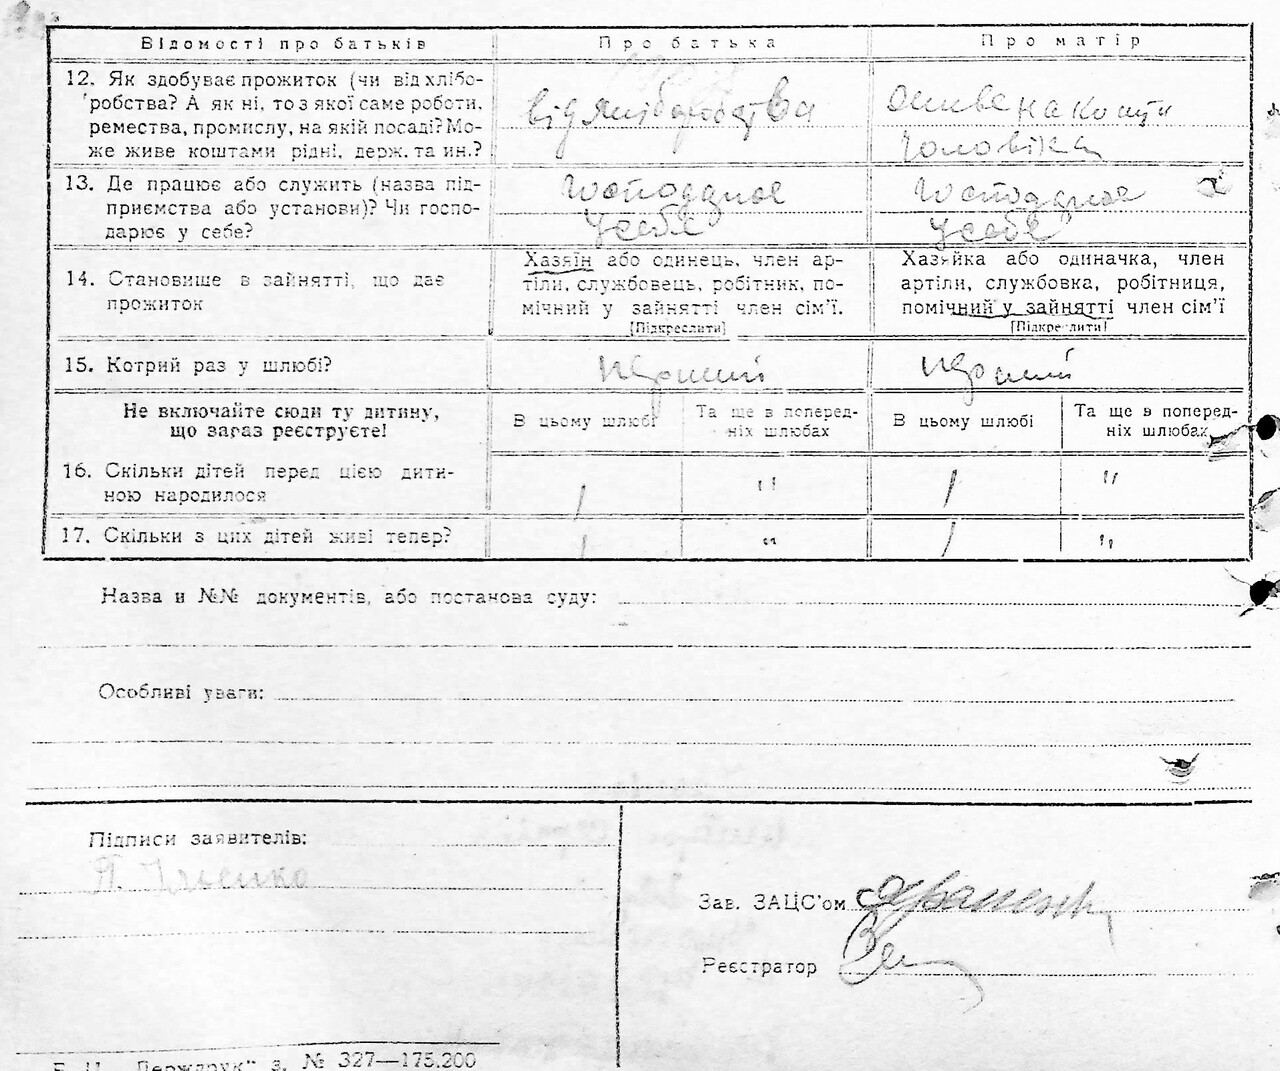 Відомості про батьків
Про батька
Про матір
12. Як здобуває прожиток (чи від хлібо-
робства? А як ні, то з якої саме роботи,
ремества, промислу, на якій посаді? Мо-
же живе коштами рідні, держ. та ин.?
від хліборобства
на кошти
чоловіка
13. Де працює або служить (назва під-
приємства або установи)? Чи госпо-
дарює у себе?
Господарює
у себе
Господарює
у себе
14. Становище в зайнятті, що дає
прожиток
Хазяїн або одинець, член ар-
тіли, службовець, робітник, по-
мічний у зайнятті член сім'ї.
[Підкреслити]
Хазяйка або одиначка, член
артіли, службовка, робітниця,
помічний у зайнятті член сім'ї
[Підкреслити]
15. Котрий раз у шлюбі?
перший
перший
Не включайте сюди ту дитину,
що зараз реєструєте!
В цьому шлюбі
Та ще в поперед-
ніх шлюбах
В цьому шлюбі
Та ще в поперед-
ніх шлюбах
16. Скільки дітей перед цією дити-
ною народилося
1
"
1
"
17. Скільки з цих дітей живі тепер?
1
"
1
"
Назва и №№ документів, або постанова суду:
Особливі уваги:
Підписи заявителів:
П. Ільєнко
Зав. ЗАЦС'ом
Реєстратор
Держдрук" з. № 327—175.200